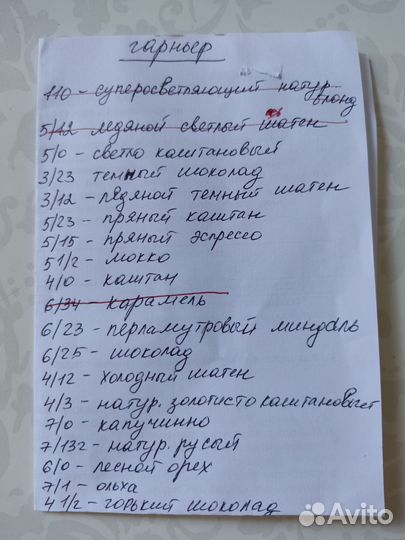 гарньер
110 - суперосветляющий натур.
блонд
5/12 ледяной светлый шатен
5/0 - светло каштановый
3/23 темный шоколад
3/12 - ледяной темный шатен
5/23 - пряный каштан
5/15 - пряный эспрессо
5 1/2 - мокко
4/0 - каштан
6/34 - карамель
6/23 - перламутровый миндаль
6/25 - шоколад
4/12 - холодный шатен
4/3 - натур. золотисто каштановый
7/0 - капучинно
7/132 - натур. русый
6/0 - лесной орех
7/1 - ольха
4 1/2 - горький шоколад
Avito